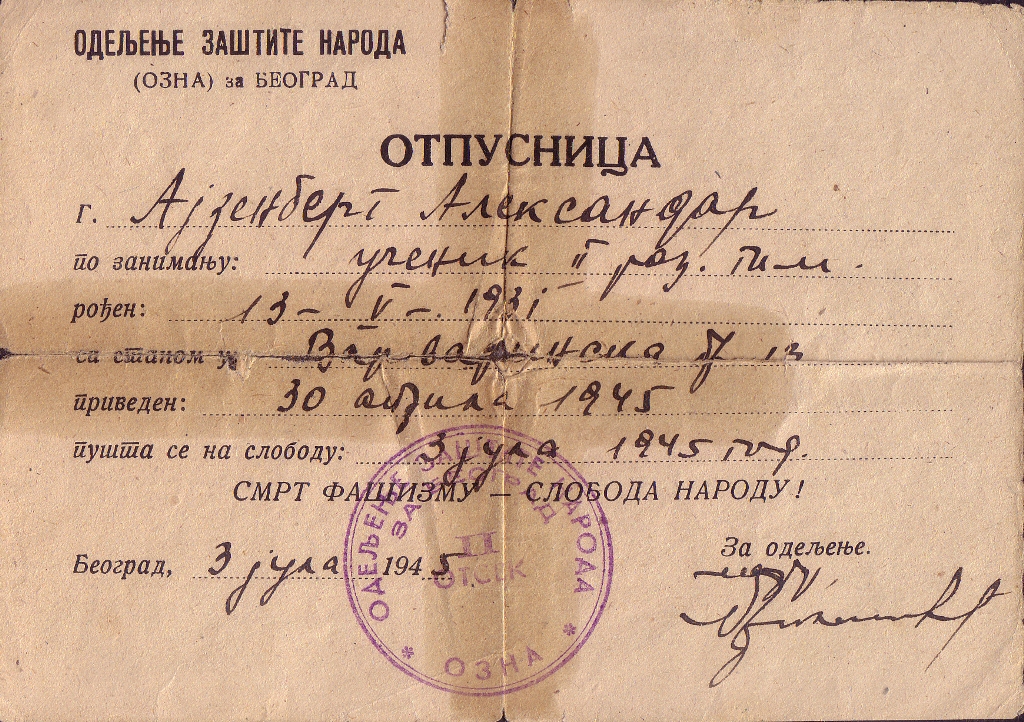 ОДЕЉЕЊЕ ЗАШТИТЕ НАРОДА
(ОЗНА) за БЕОГРАД
ОТПУСНИЦА
г. Ајзенберг Александар
по занимању: ученик II раз. гим.
рођен: 13 – V –. 1931
са станом у: бр 13
приведен: 30 априла 1945
пушта се на слободу: 3 јула 1945 год.
СМРТ ФАШИЗМУ — СЛОБОДА НАРОДУ!
Београд, 3 јула 1945
За одељење.
ОДЕЉЕЊЕ ЗАШТИТЕ НАРОДА
ЗА БЕОГРАД
II
ОТСЕК
* ОЗНА *